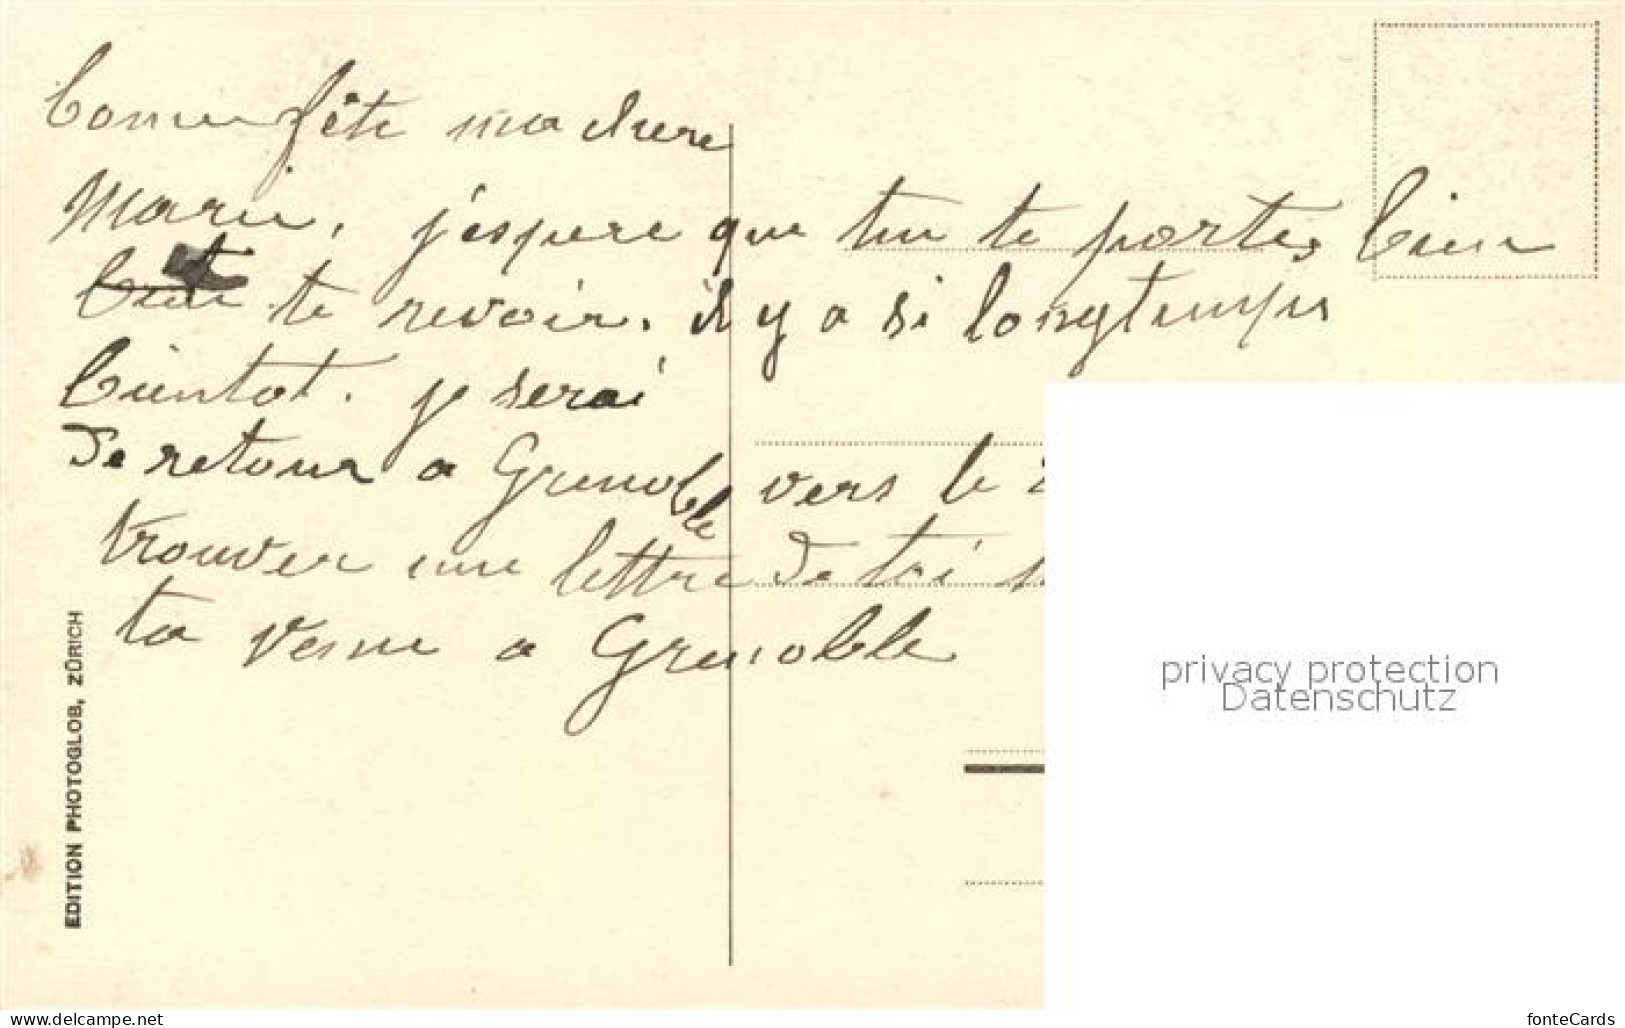 Bonne fête ma chere
Marie, j'espere que tu te portes bien
te revoir. il y a si longtemps
bientot. je serai
De retour a Grenoble vers le
trouver une lettre De toi
ta venue a Grenoble
EDITION PHOTOGLOB, ZÜRICH
privacy protection
Datenschutz
www.delcampe.net
fonteCards